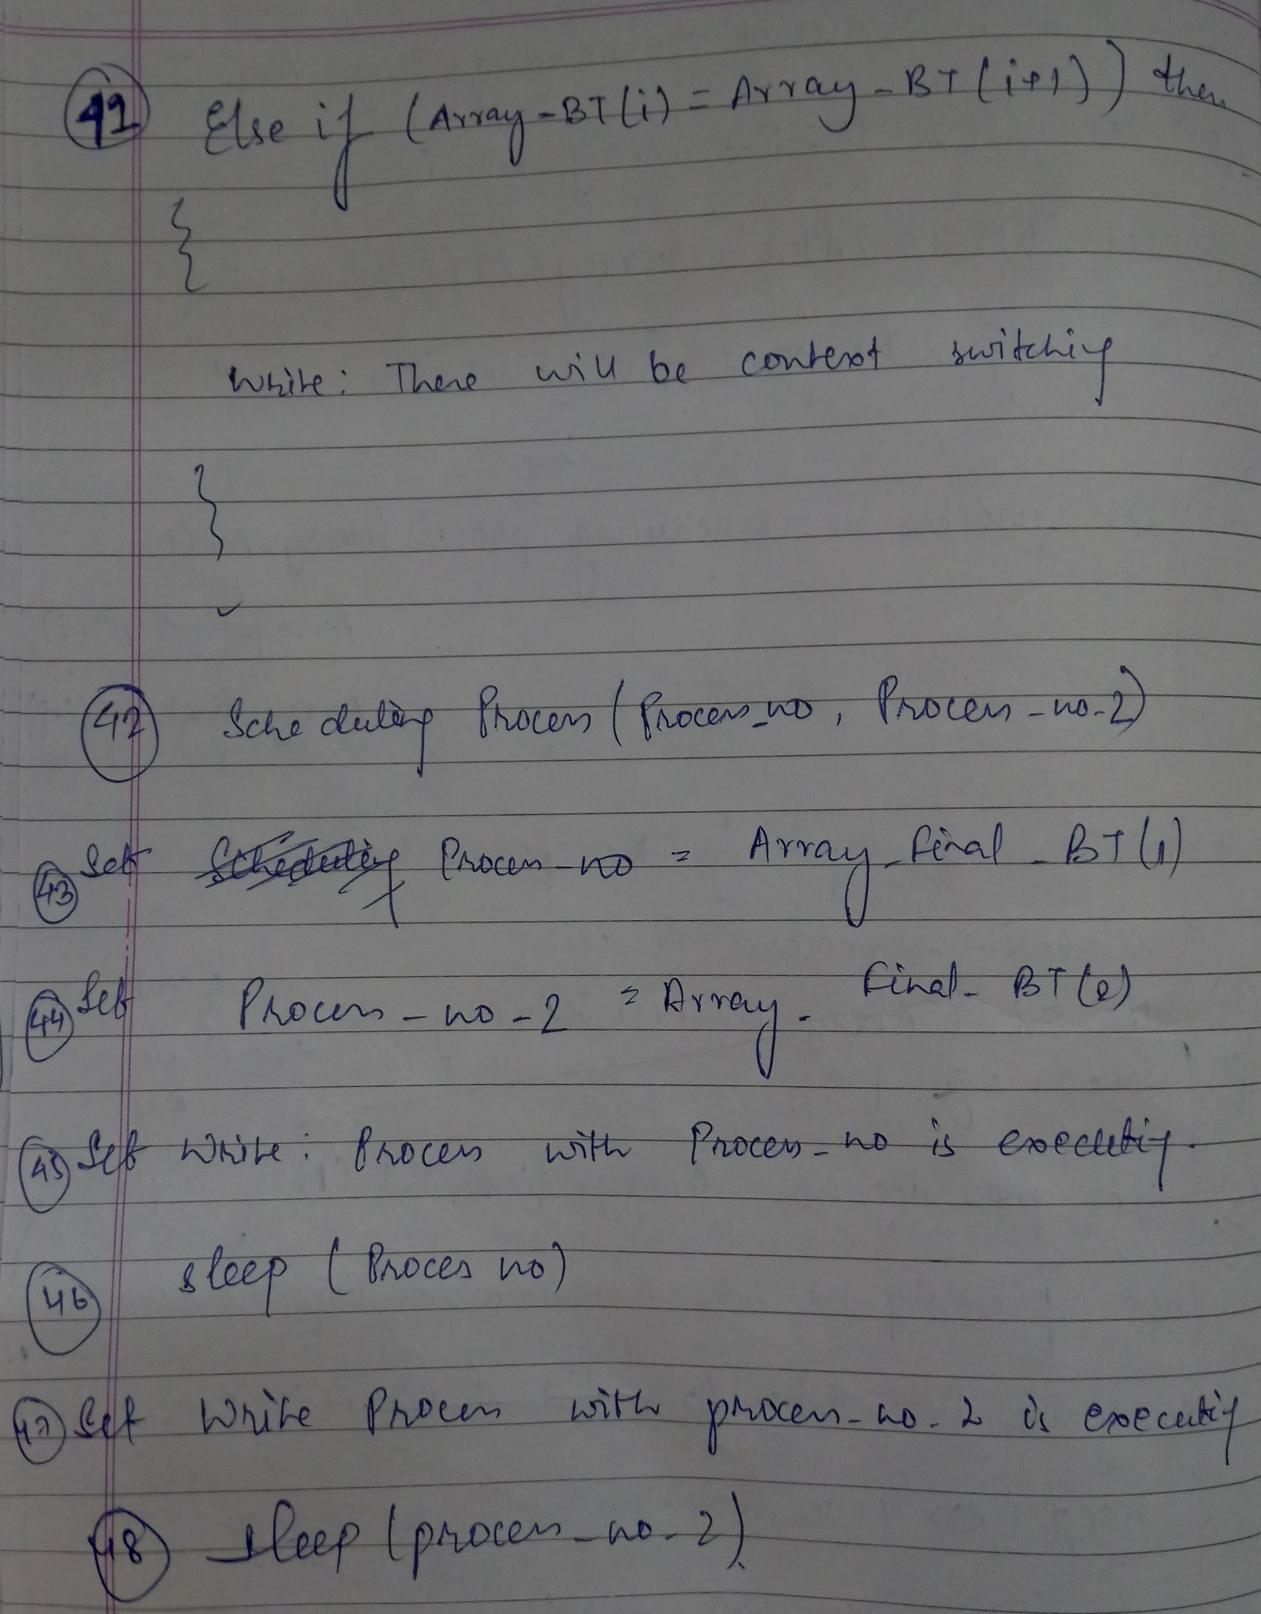 41 Else if (Array-BT(i) = Array-BT(i+1)) then
{
Write: There will be context switching
}
42 Scheduling Process (Process_no, Process-no-2)
43 Set Process-no = Array_final_BT(1)
44 Set Process-no-2 = Array-final-BT(2)
45 Set Write: Process with Process-no is executing.
46 sleep (Process no)
47 Set Write Process with process-no-2 is executing
48 sleep (process-no-2)